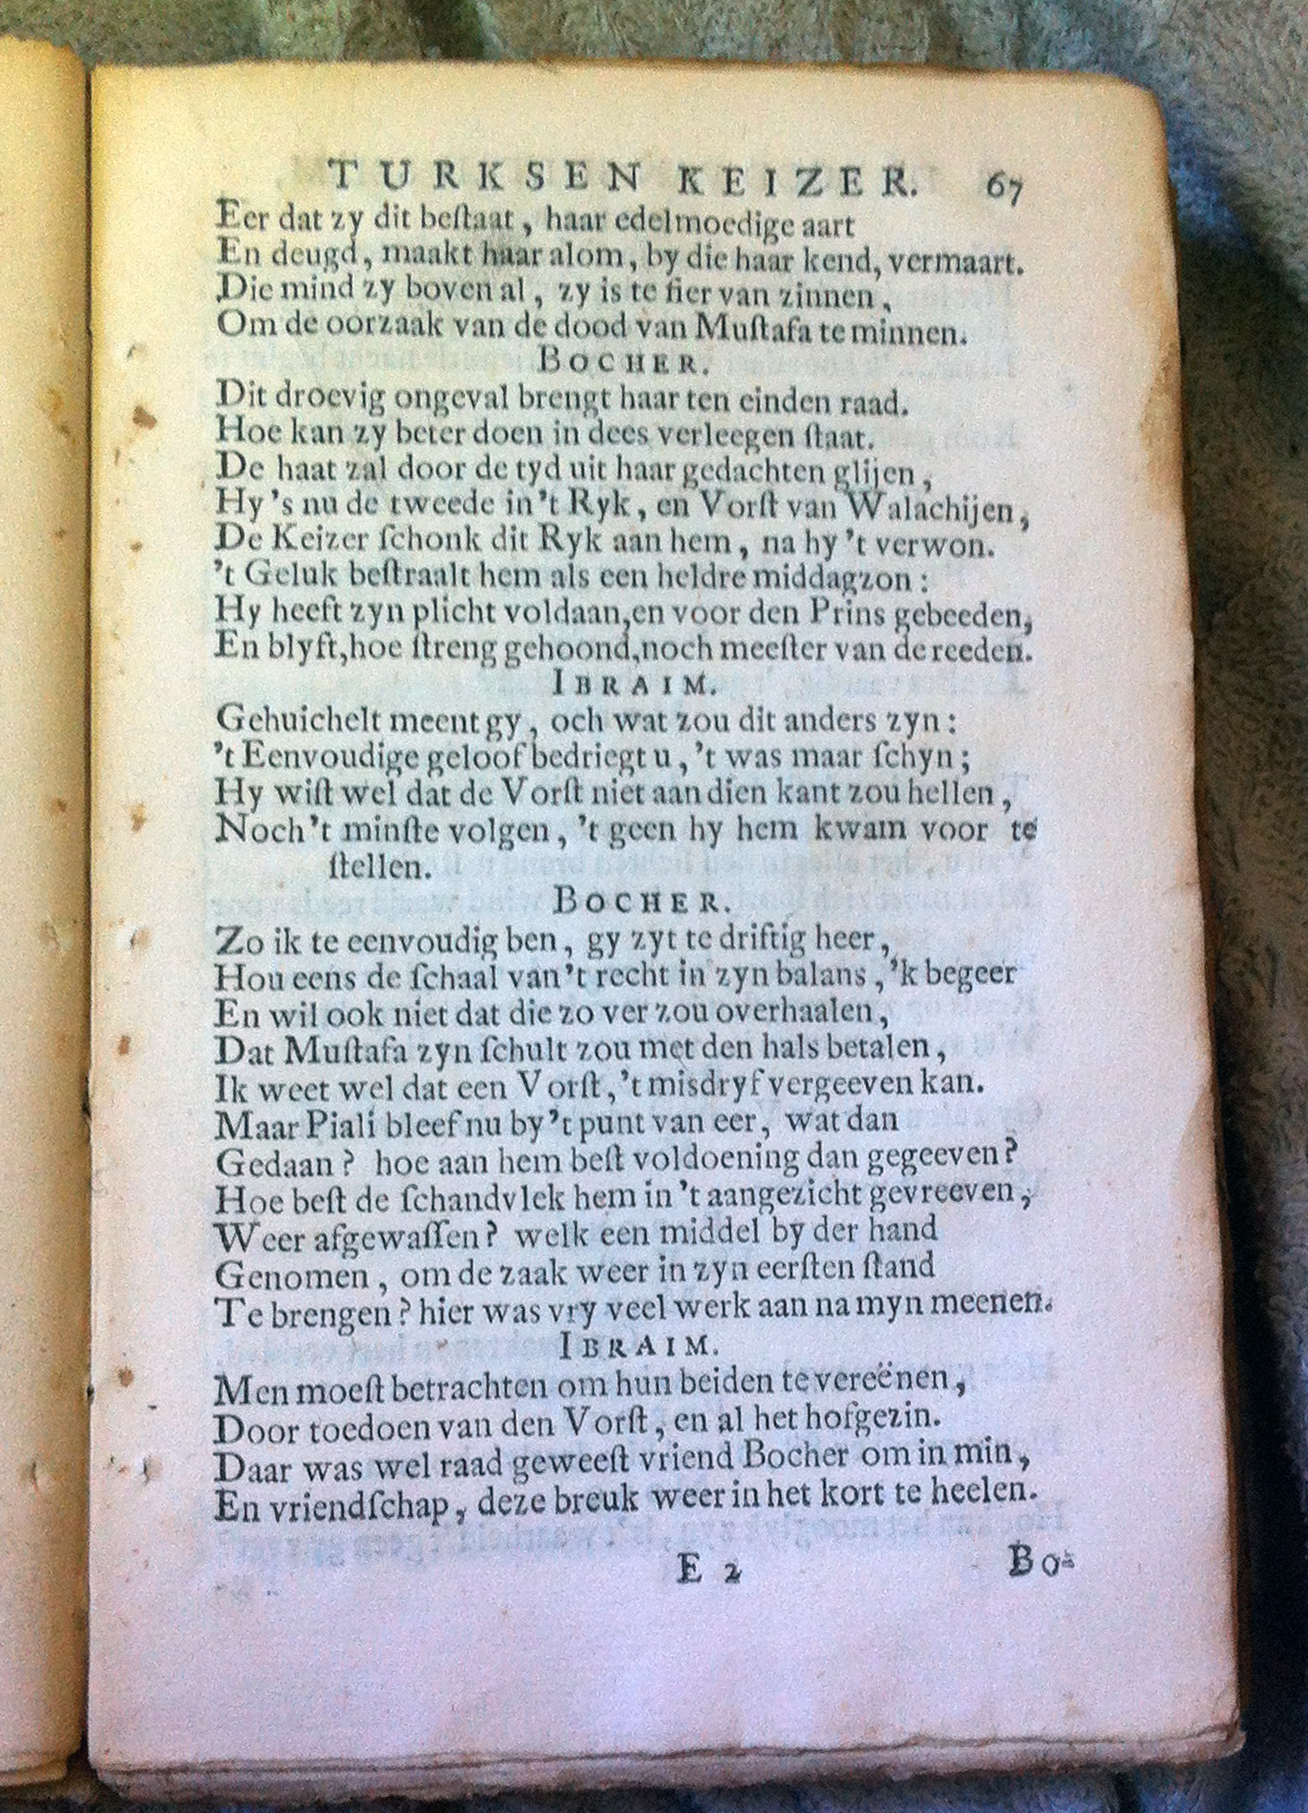 TURKSEN KEIZER. 67
Eer dat zy dit beſtaat, haar edelmoedige aart
En deugd, maakt haar alom, by die haar kend, vermaart.
Die mind zy boven al, zy is te fier van zinnen,
Om de oorzaak van de dood van Muſtafa te minnen.
BOCHER.
Dit droevig ongeval brengt haar ten einden raad.
Hoe kan zy beter doen in dees verleegen ſtaat.
De haat zal door de tyd uit haar gedachten glijen,
Hy 's nu de tweede in 't Ryk, en Vorſt van Walachijen,
De Keizer ſchonk dit Ryk aan hem, na hy 't verwon.
't Geluk beſtraalt hem als een heldre middagzon:
Hy heeft zyn plicht voldaan, en voor den Prins gebeeden,
En blyft, hoe ſtreng gehoond, noch meeſter van de reeden.
IBRAIM.
Gehuichelt meent gy, och wat zou dit anders zyn:
't Eenvoudige geloof bedriegt u, 't was maar ſchyn;
Hy wiſt wel dat de Vorſt niet aan dien kant zou hellen,
Noch 't minſte volgen, 't geen hy hem kwam voor te
ſtellen.
BOCHER.
Zo ik te eenvoudig ben, gy zyt te driftig heer,
Hou eens de ſchaal van 't recht in zyn balans, 'k begeer
En wil ook niet dat die zo ver zou overhaalen,
Dat Muſtafa zyn ſchult zou met den hals betalen,
Ik weet wel dat een Vorſt, 't misdryf vergeeven kan.
Maar Piali bleef nu by 't punt van eer, wat dan
Gedaan? hoe aan hem beſt voldoening dan gegeeven?
Hoe beſt de ſchandvlek hem in 't aangezicht gevreeven,
Weer afgewaſſen? welk een middel by der hand
Genomen, om de zaak weer in zyn eerſten ſtand
Te brengen? hier was vry veel werk aan na myn meenen.
IBRAIM.
Men moeſt betrachten om hun beiden te vereënen,
Door toedoen van den Vorſt, en al het hofgezin.
Daar was wel raad geweeſt vriend Bocher om in min,
En vriendſchap, deze breuk weer in het kort te heelen.
E 2 Bo-